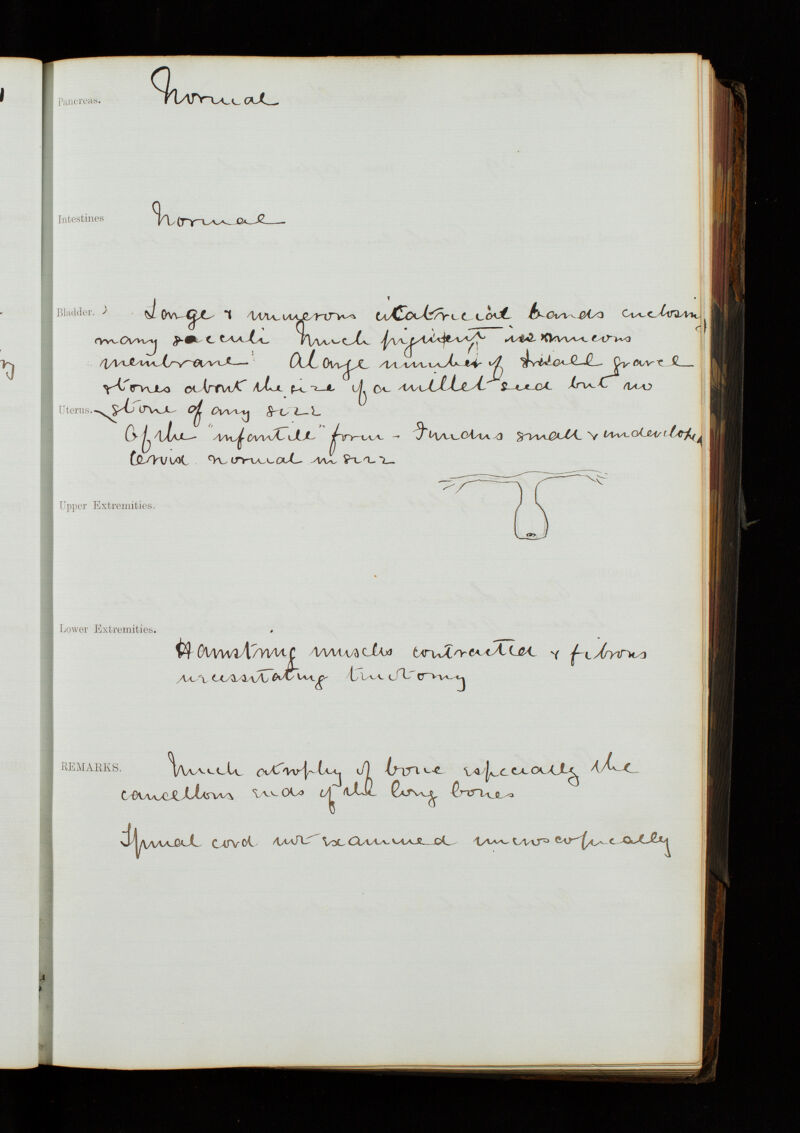 Pancreas. Normal
Intestines Normal
Bladder. Large & numerous citatricial bands enclosing
many sacculi Much pigment in mucous
membrane. A large number of small gravel
stones about the size of a millet seed but no
stone of any size
Uterus. Of the "infantile" form - Fundus small & undeveloped
Cervix normal in size
Upper Extremities.
Lower Extremities.
Hamstring muscles contracted & fibrous
necessitating tenotomy
REMARKS. Much atrophy of bone especially the
cancellous ends of the long bones
Spinal cord not examined microscopically